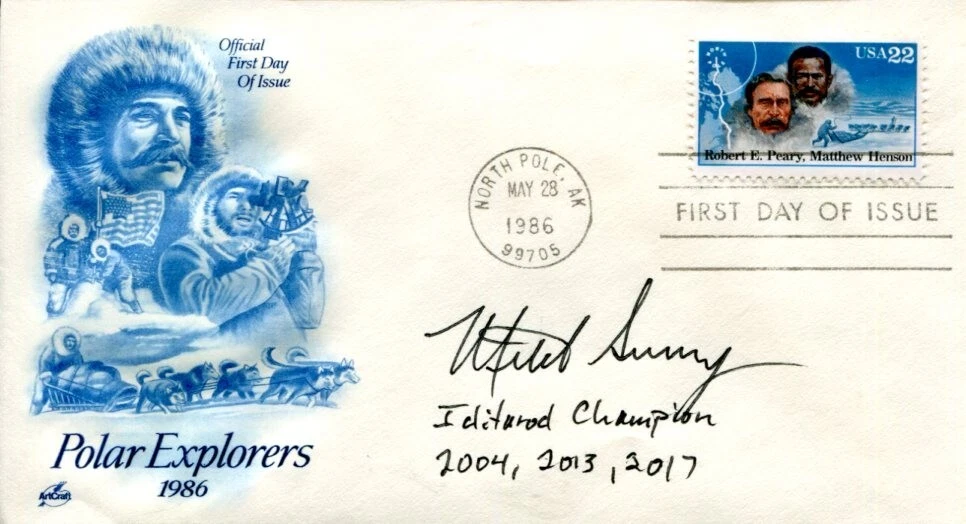 Official
First Day
Of Issue
USA 22
Robert E. Peary, Matthew Henson
NORTH POLE, AK
MAY 28
1986
99705
FIRST DAY OF ISSUE
Mitch Seavey
Iditarod Champion
2004, 2013, 2017
Polar Explorers
1986
ArtCraft